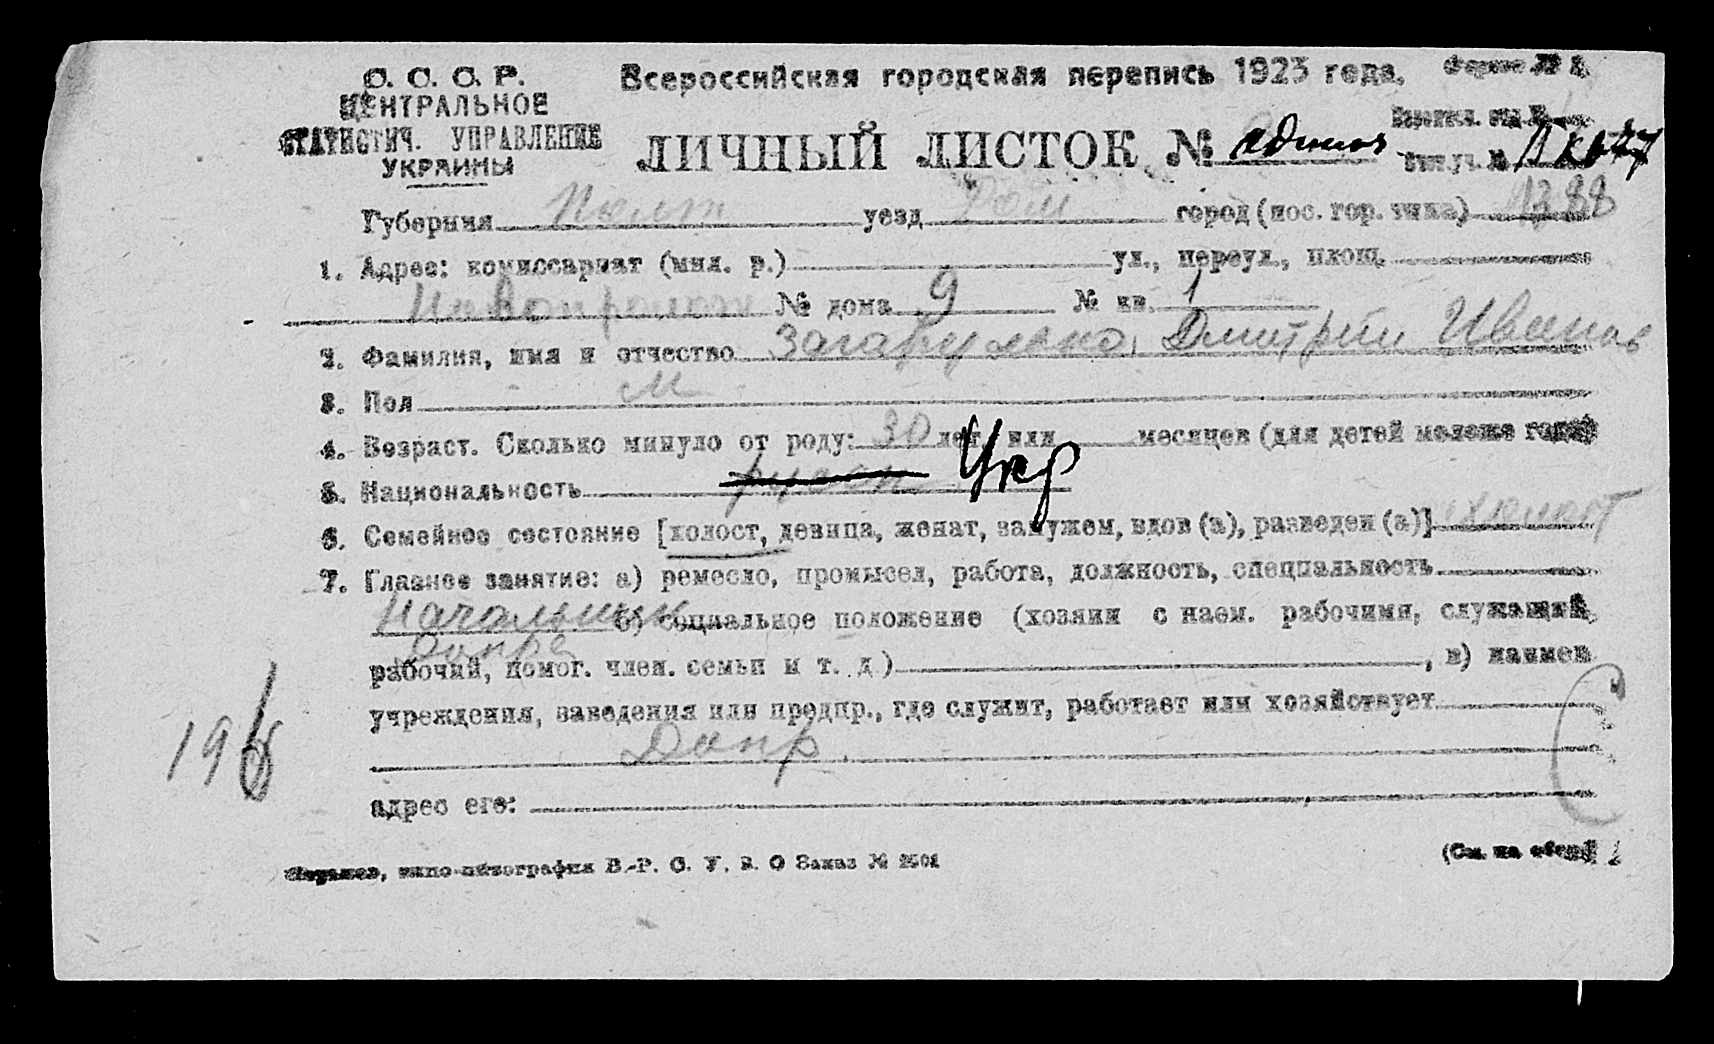 С. С. С. Р.
ЦЕНТРАЛЬНОЕ
СТАТИСТИЧ. УПРАВЛЕНИЕ
УКРАИНЫ
Всероссийская городская перепись 1923 года.
ЛИЧНЫЙ ЛИСТОК №
Губерния Полт уезд Ром город (пос. гор. типа)
1. Адрес: комиссариат (мил. р.) ул., переул., площ.
№ дома 9 № кв. 1
2. Фамилия, имя и отчество Дмитрий Иванов
3. Пол М
4. Возраст. Сколько минуло от роду: 30 лет, или месяцев (для детей моложе года)
5. Национальность русск Укр
6. Семейное состояние [холост, девица, женат, замужем, вдов (а), разведен (а)] холост
7. Главное занятие: а) ремесло, промысел, работа, должность, специальность
Начальник б) социальное положение (хозяин с наем. рабочими, служащий,
Допра
рабочий, помог. член. семьи и т. д.) , в) наимен
учреждения, заведения или предпр., где служит, работает или хозяйствует
Допр
196
адрес его:
типо-литография В.-Р. С. У. В. О Заказ № 2501
(См. на обор